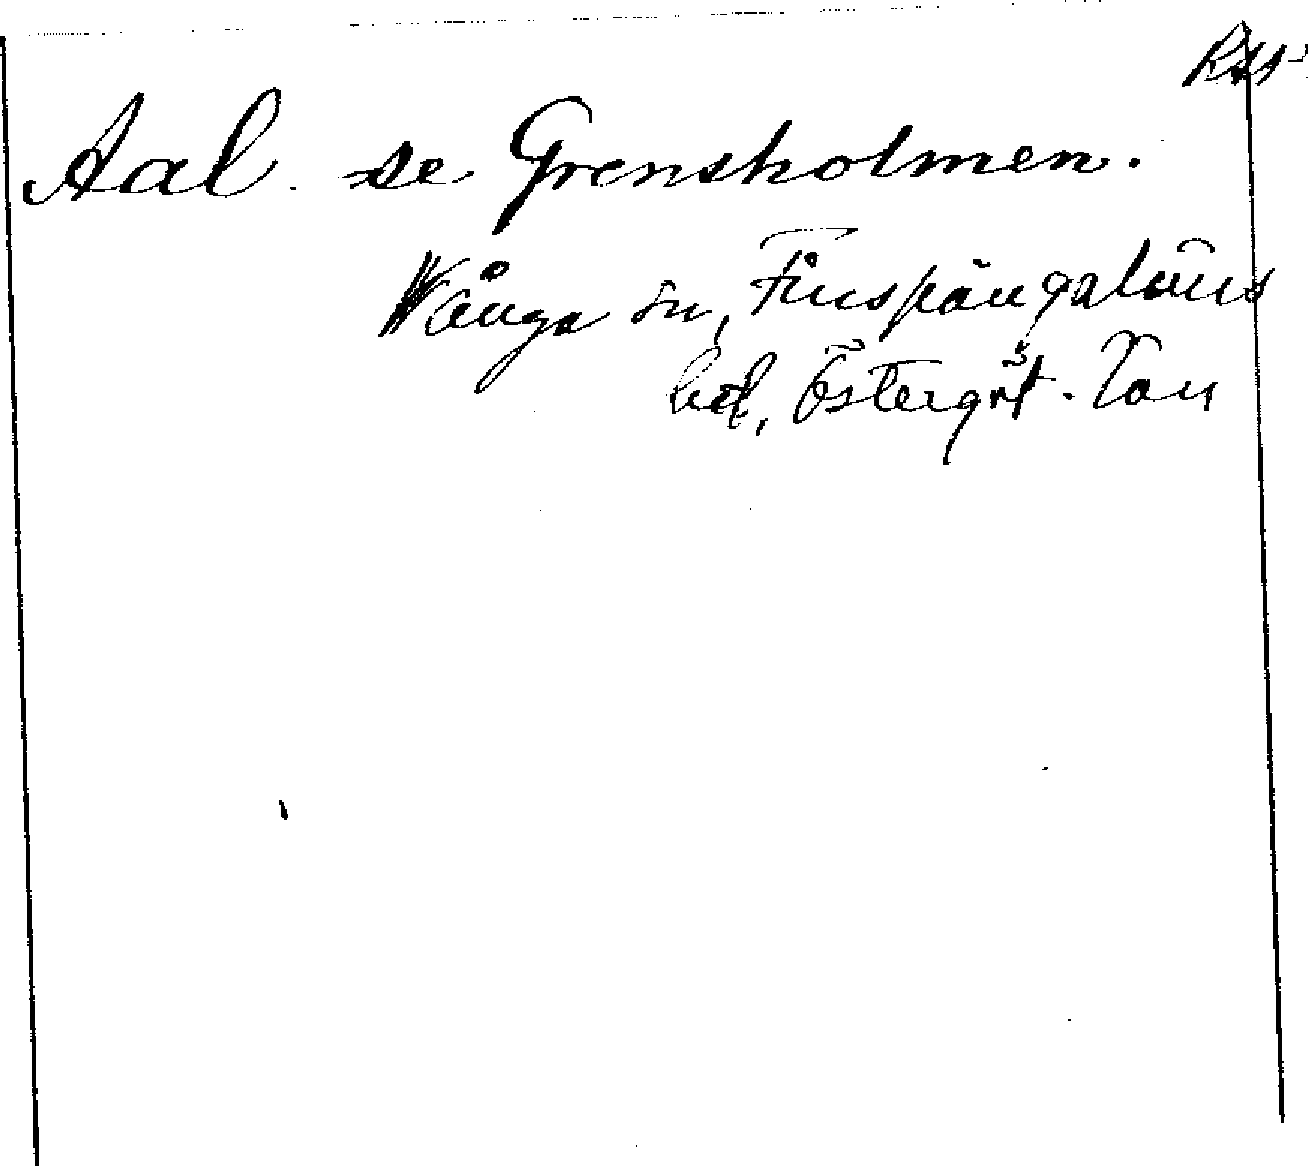 Aal. se Grensholmen.
Wånga sn, Finspångaläns
hd, Östergöt. län